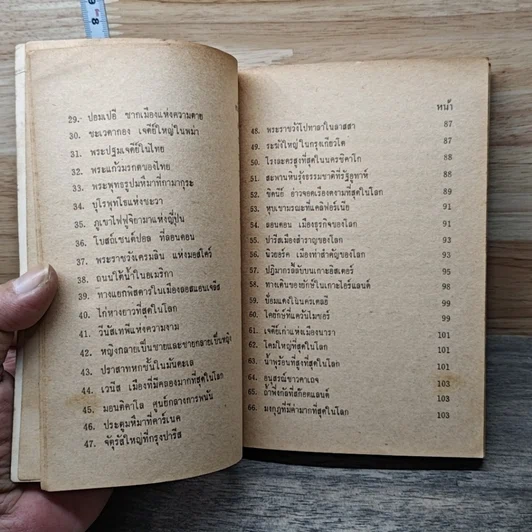 29. ปอมเปอี ซากเมืองแห่งความตาย
30. ชะเวดากอง เจดีย์ใหญ่ในพม่า
31. พระปฐมเจดีย์ในไทย
32. พระแก้วมรกตของไทย
33. พระพุทธรูปมหึมาที่กามากุระ
34. บุโรพุทโธแห่งชะวา
35. ภูเขาไฟฟูจิยามาแห่งญี่ปุ่น
36. โบสถ์เซนต์ปอล ที่ลอนดอน
37. พระราชวังเครมลิน แห่งมอสโคว์
38. ถนนใต้น้ำในอเมริกา
39. ทางแยกพิสดารในเมืองลอสแอนเจลิส
40. ไก่หางยาวที่สุดในโลก
41. วีนัสเทพีแห่งความงาม
42. หญิงกลายเป็นชายและชายกลายเป็นหญิง
43. ปราสาทหกชั้นในมัณฑะเล
44. เวนิส เมืองที่มีคลองมากที่สุดในโลก
45. มอนติคาโล ศูนย์กลางการพนัน
46. ประตูมหึมาที่คาร์เนค
47. จัตุรัสใหญ่ที่กรุงปารีส
หน้า
48. พระราชวังโปทาลาในลาสสา 87
49. ระฆังใหญ่ในกรุงเกียวโต 87
50. โรงละครสูงที่สุดในนครชิคาโก 88
51. สะพานหินรุ้งธรรมชาติที่รัฐอูทาห์ 88
52. ซิดนีย์ อ่าวจอดเรืองดงามที่สุดในโลก 89
53. หุบเขามรณะที่แคลิฟอร์เนีย 91
54. ลอนดอน เมืองธุรกิจของโลก 91
55. ปารีสเมืองสำราญของโลก 93
56. นิวยอร์ค เมืองท่าสำคัญของโลก 93
57. ปฏิมากรลับบนเกาะอิสเตอร์ 95
58. ทางเดินของยักษ์ในเกาะไอร์แลนด์ 98
59. ป้อมแดงในนครเดลฮี 99
60. โคยักษ์ที่แควันไมซอร์ 99
61. เจดีย์เก่าแห่งเมืองนารา 101
62. โคมใหญ่ที่สุดในโลก 101
63. น้ำพุร้อนที่สูงที่สุดในโลก 101
64. อนุสรณ์ชาวคาเถจ 103
65. ถ้ำฟิงกัลที่สก๊อตแลนด์ 103
66. มงกุฎที่มีค่ามากที่สุดในโลก 103